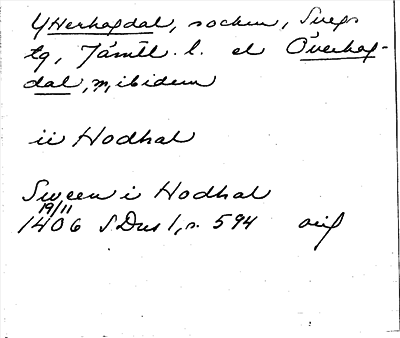 Ytterhogdal, socken, Svegs
tg, Jämtl. l. el Överhog-
dal, sn, ibidem
ii Hodhal
Sween i Hodhal
19/11
1406 SDns 1, s. 594 orig